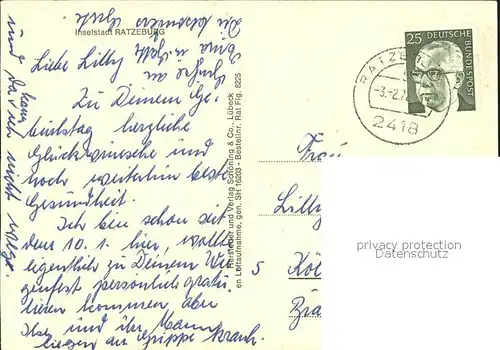 Inselstadt RATZEBURG
Liebe Lilly
Zu Deinem Ge-
burtstag herzliche
Glückwünsche und
noch weiterhin beste
Gesundheit.
Ich bin schon seit
dem 10. 1. hier, wollte
eigentlich zu Deinem Wie
genfest persönlich gratu
lieren kommen, aber
Ilse und ihr Mann
liegen an Grippe krank.
und
darf ich nicht
Hersteller und Verlag Schöning & Co., Lübeck
en Luftaufnahme, gen. SH 16203 - Bestellnr. Rat Flg. 8225
25 DEUTSCHE
BUNDESPOST
RATZE
-3.-2.7
2418
Frau
Lilly
5 Köl
privacy protection
Datenschutz